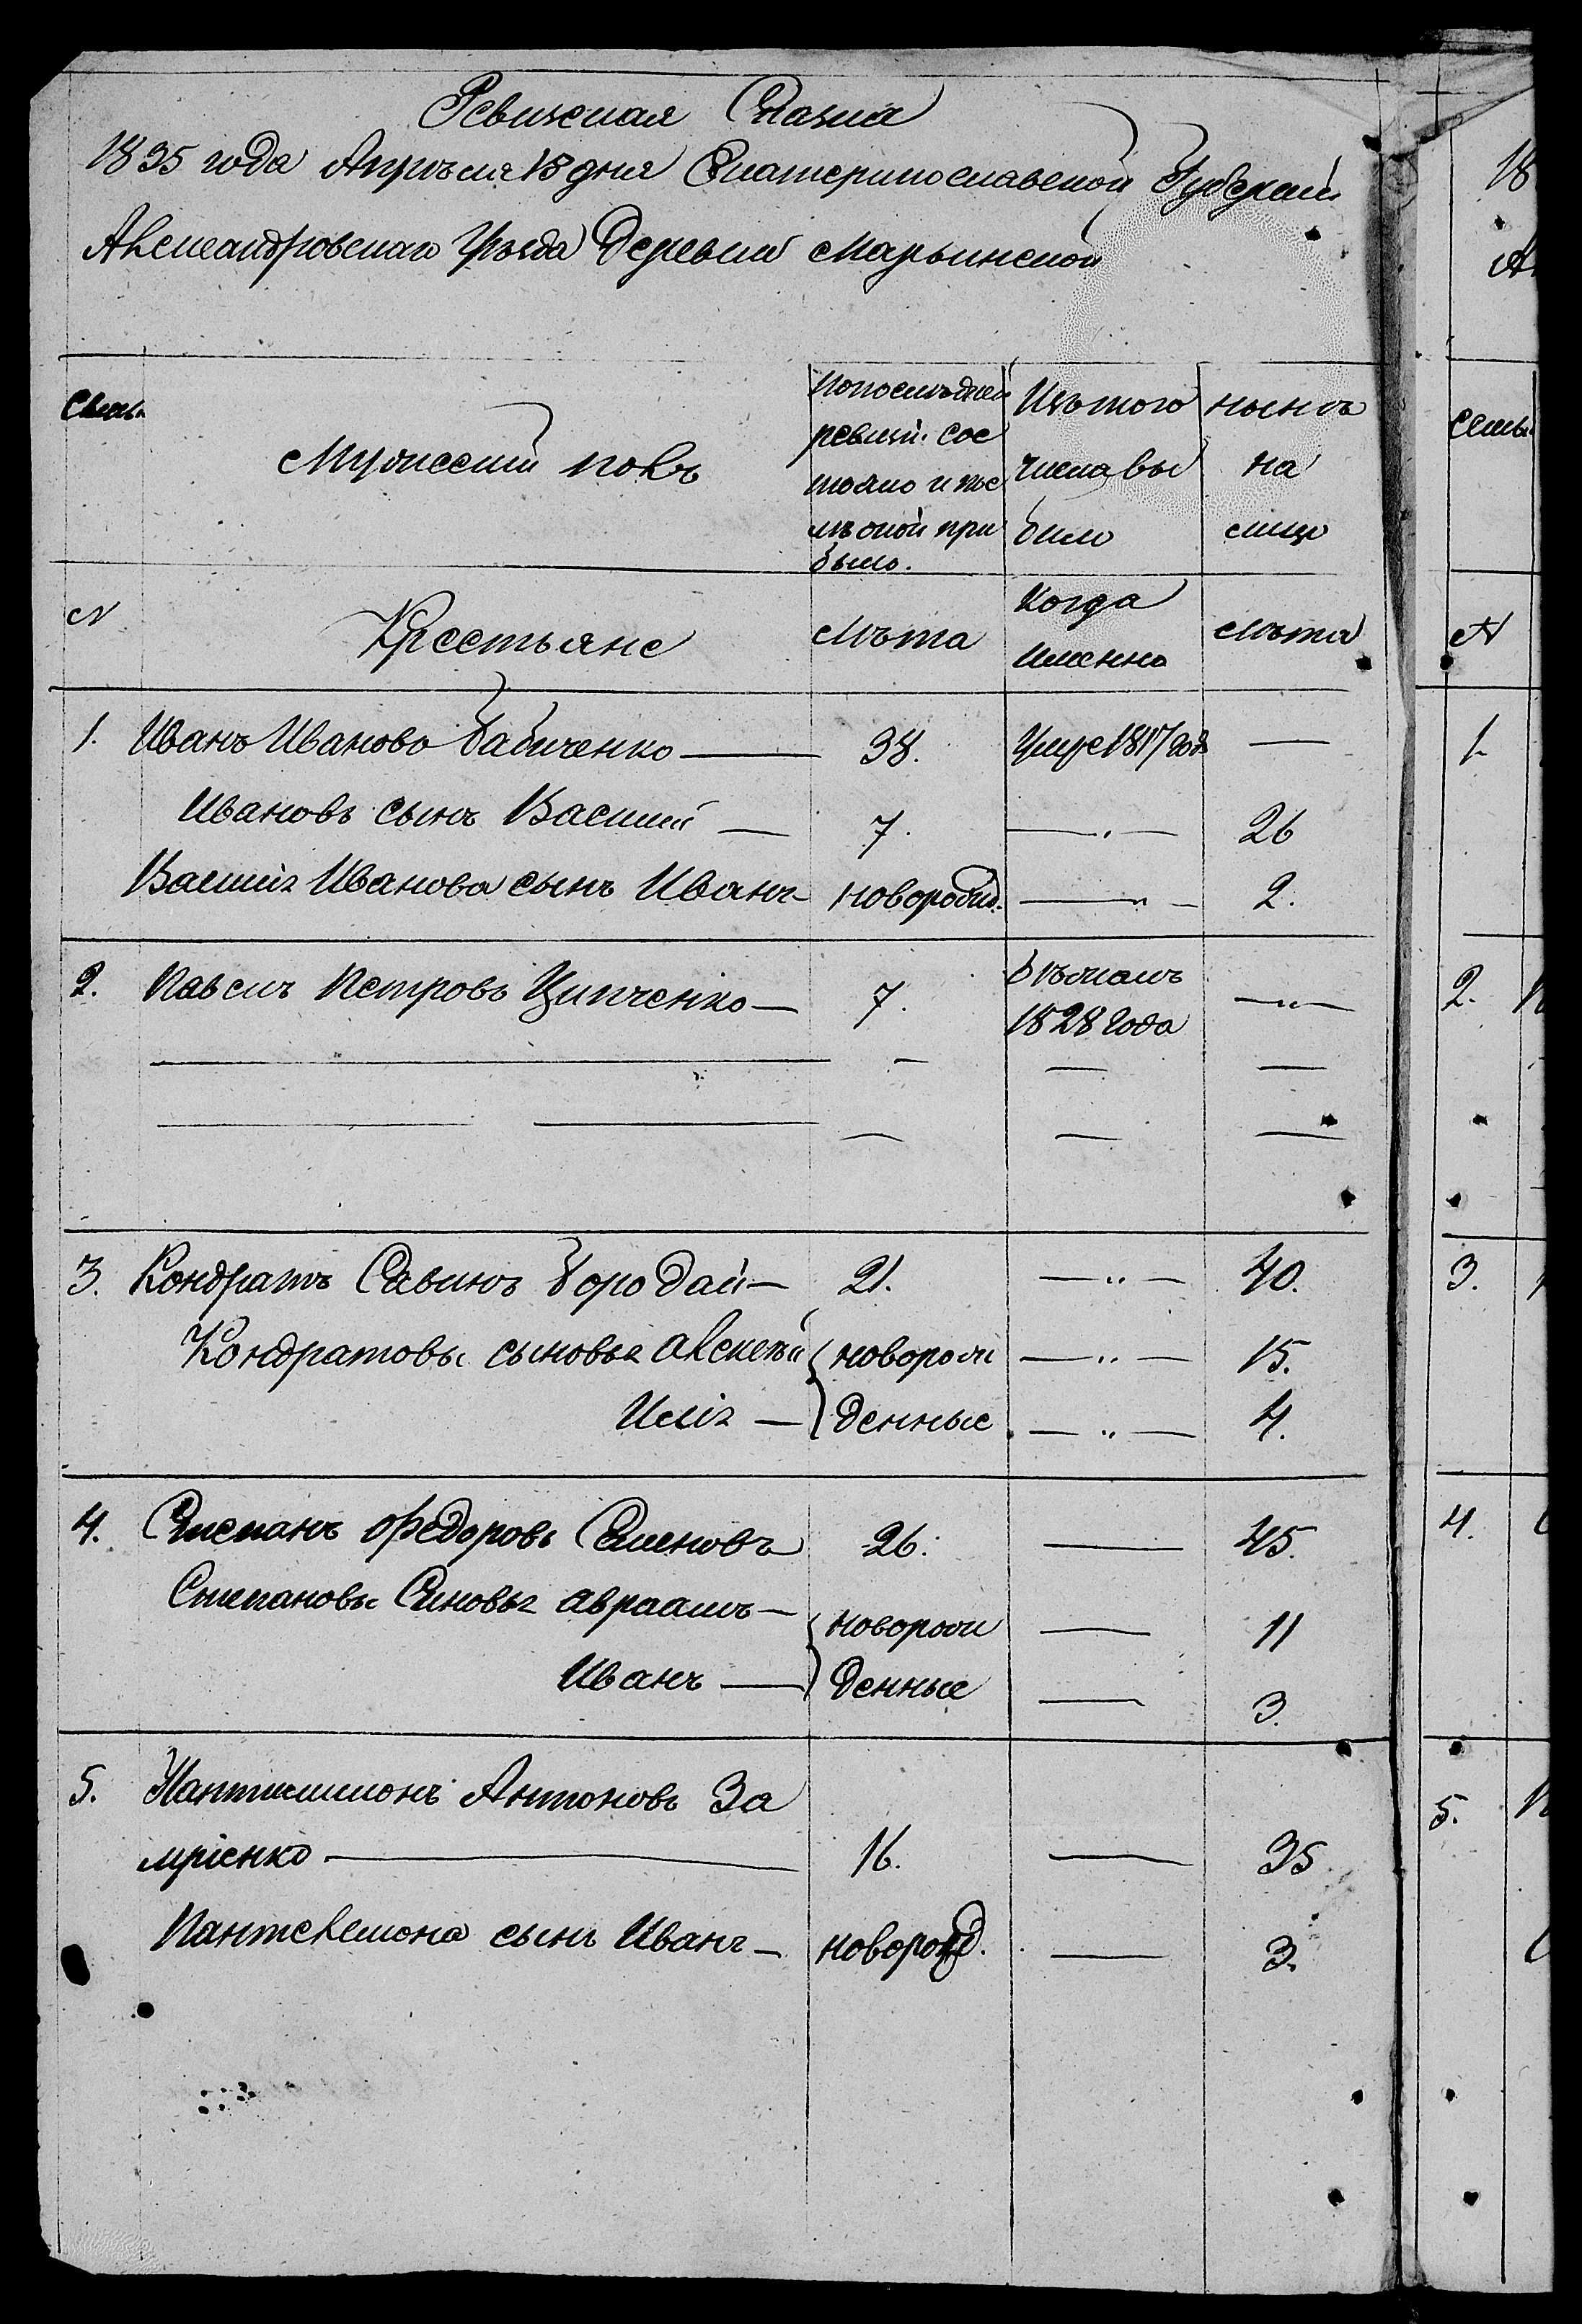 Ревизская Сказка
1835 года Апрѣля 18 дня Екатеринославской Губерніи
Александровскаго Уѣзда Деревни Марьинской
Семьи
Мужескій полъ
По последней
ревизіи сос
тояло и пос
лѣ оной при
было.
Изъ того
числа вы
было
нынѣ
на
лицо
N
Крестьяне
Лѣта
Когда
именно
Лѣта
1. Иванъ Иваново Бабиченко — 38. Умре 1817 года —
Ивановъ сынъ Василій — 7. — 26
Василія Иванова сынъ Иванъ — новорожд. — 2.
2. Павелъ Петровъ Ципченко — 7. бѣжалъ —
1828 года
3. Кондратъ Савинъ Бородай — 21. — 40.
Кондратовы сыновья Алексѣй новорож — 15.
Илія — денные — 4.
4. Степанъ Федоровъ Семеновъ 26. — 45.
Степановы Сыновья авраамъ — новорож — 11
Иванъ — денные — 3.
5. Пантилимонъ Антоновъ За
мрієнко — 16. — 35
Пантелемона сынъ Иванъ — новорожд. — 3.
18
А
Семьи
N
1.
2.
3.
4.
5.